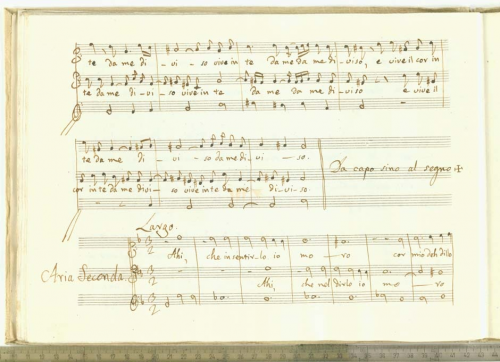 te da me di - vi - so vive in te da me da me di - viso, e vive il cor in
te da me di - vi - so vive in te da me da me di - viso e vive il
te da me di - vi - so da me di - vi - so.
cor in te da me divi - so vive in te da me di - vi - so.
Da capo sino al segno
Largo.
Ahi, che in sentir - lo io mo - ro cor mio deh dilo
Aria Seconda
Ahi, che nel dirlo io mo - ro